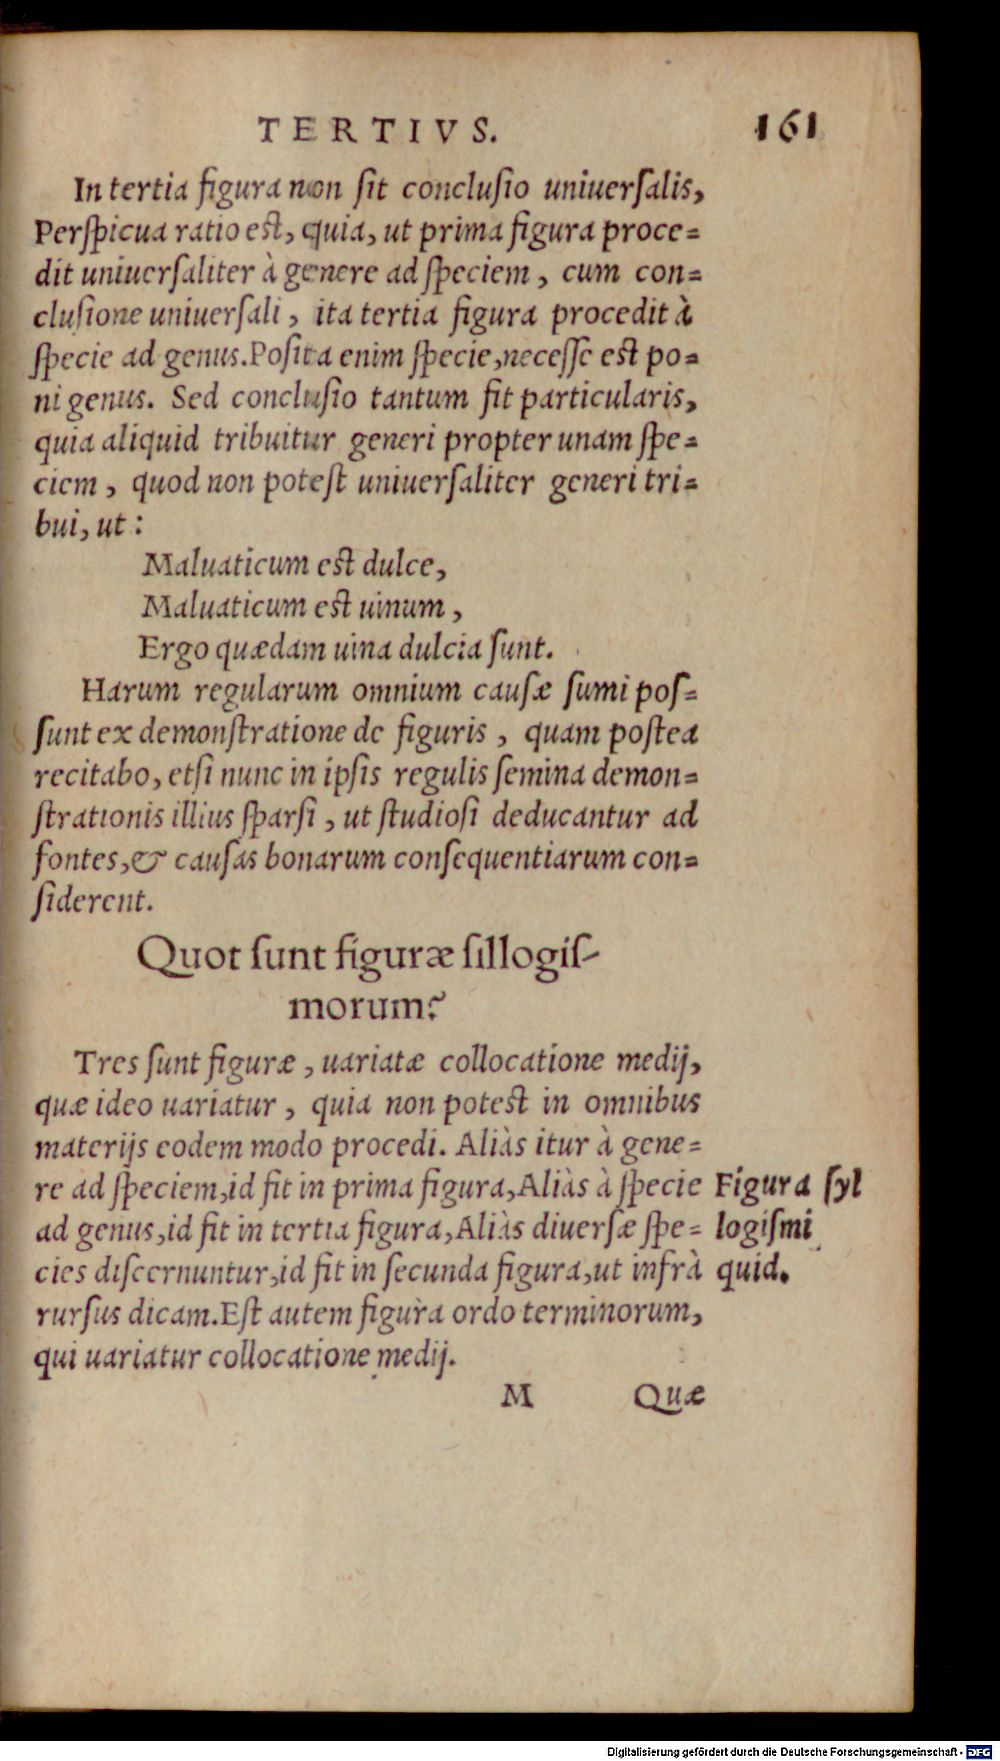 TERTIVS. 161
In tertia figura non sit conclusio uniuersalis,
Perspicua ratio est, quia, ut prima figura proce=
dit uniuersaliter à genere ad speciem, cum con=
clusione uniuersali, ita tertia figura procedit à
specie ad genus. Posita enim specie, necesse est po=
ni genus. Sed conclusio tantum fit particularis,
quia aliquid tribuitur generi propter unam spe=
ciem, quod non potest uniuersaliter generi tri=
bui, ut:
Maluaticum est dulce,
Maluaticum est uinum,
Ergo quædam uina dulcia sunt.
Harum regularum omnium causæ sumi pos=
sunt ex demonstratione de figuris, quam postea
recitabo, etsi nunc in ipsis regulis semina demon=
strationis illius sparsi, ut studiosi deducantur ad
fontes, & causas bonarum consequentiarum con=
siderent.
Quot sunt figuræ sillogis-
morum?
Tres sunt figuræ, uariatæ collocatione medij,
quæ ideo uariatur, quia non potest in omnibus
materijs eodem modo procedi. Aliàs itur à gene=
re ad speciem, id fit in prima figura, Aliàs à specie
ad genus, id fit in tertia figura, Aliàs diuersæ spe=
cies discernuntur, id fit in secunda figura, ut infrà
rursus dicam. Est autem figura ordo terminorum,
qui uariatur collocatione medij.
Figura syl
logismi
quid.
M Quæ
Digitalisierung gefördert durch die Deutsche Forschungsgemeinschaft - DFG